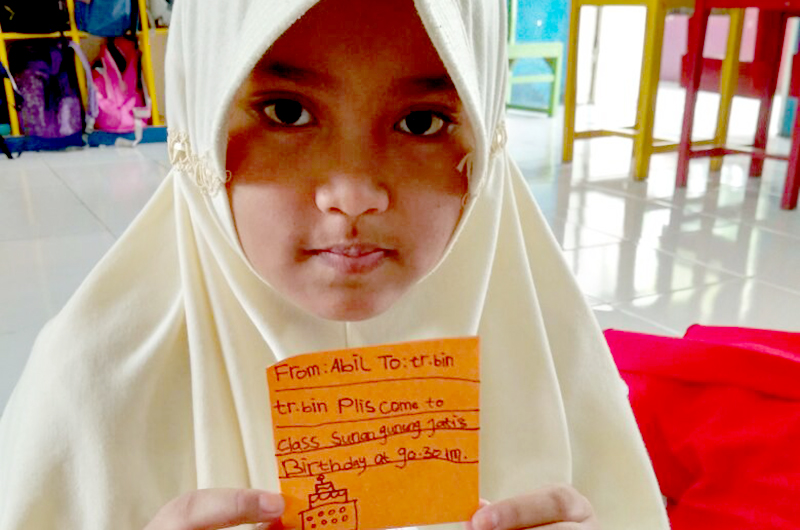 From: Abil To: tr.bin
tr.bin Plis come to
class Sunan gunung Jatis
Birthday at 90.30 1m.